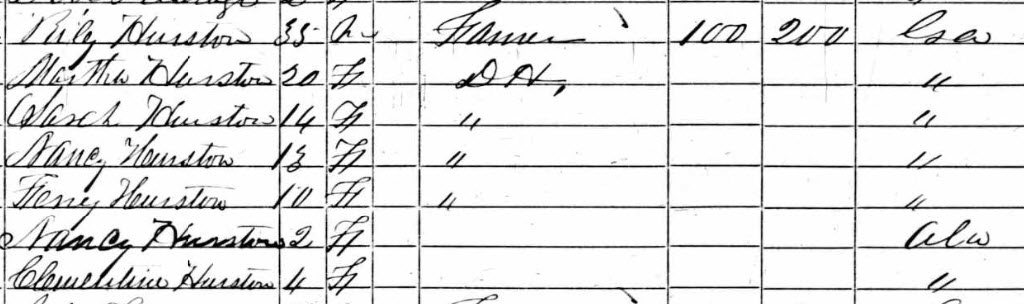 Riley Hurston 35 m Farmer 100 200 Geo
Martha Hurston 20 F D H, "
Sarah Hurston 14 F " "
Nancy Hurston 13 F " "
Hurston 10 F " "
Nancy Hurston 2 F Ala
Clementine Hurston 4 F "